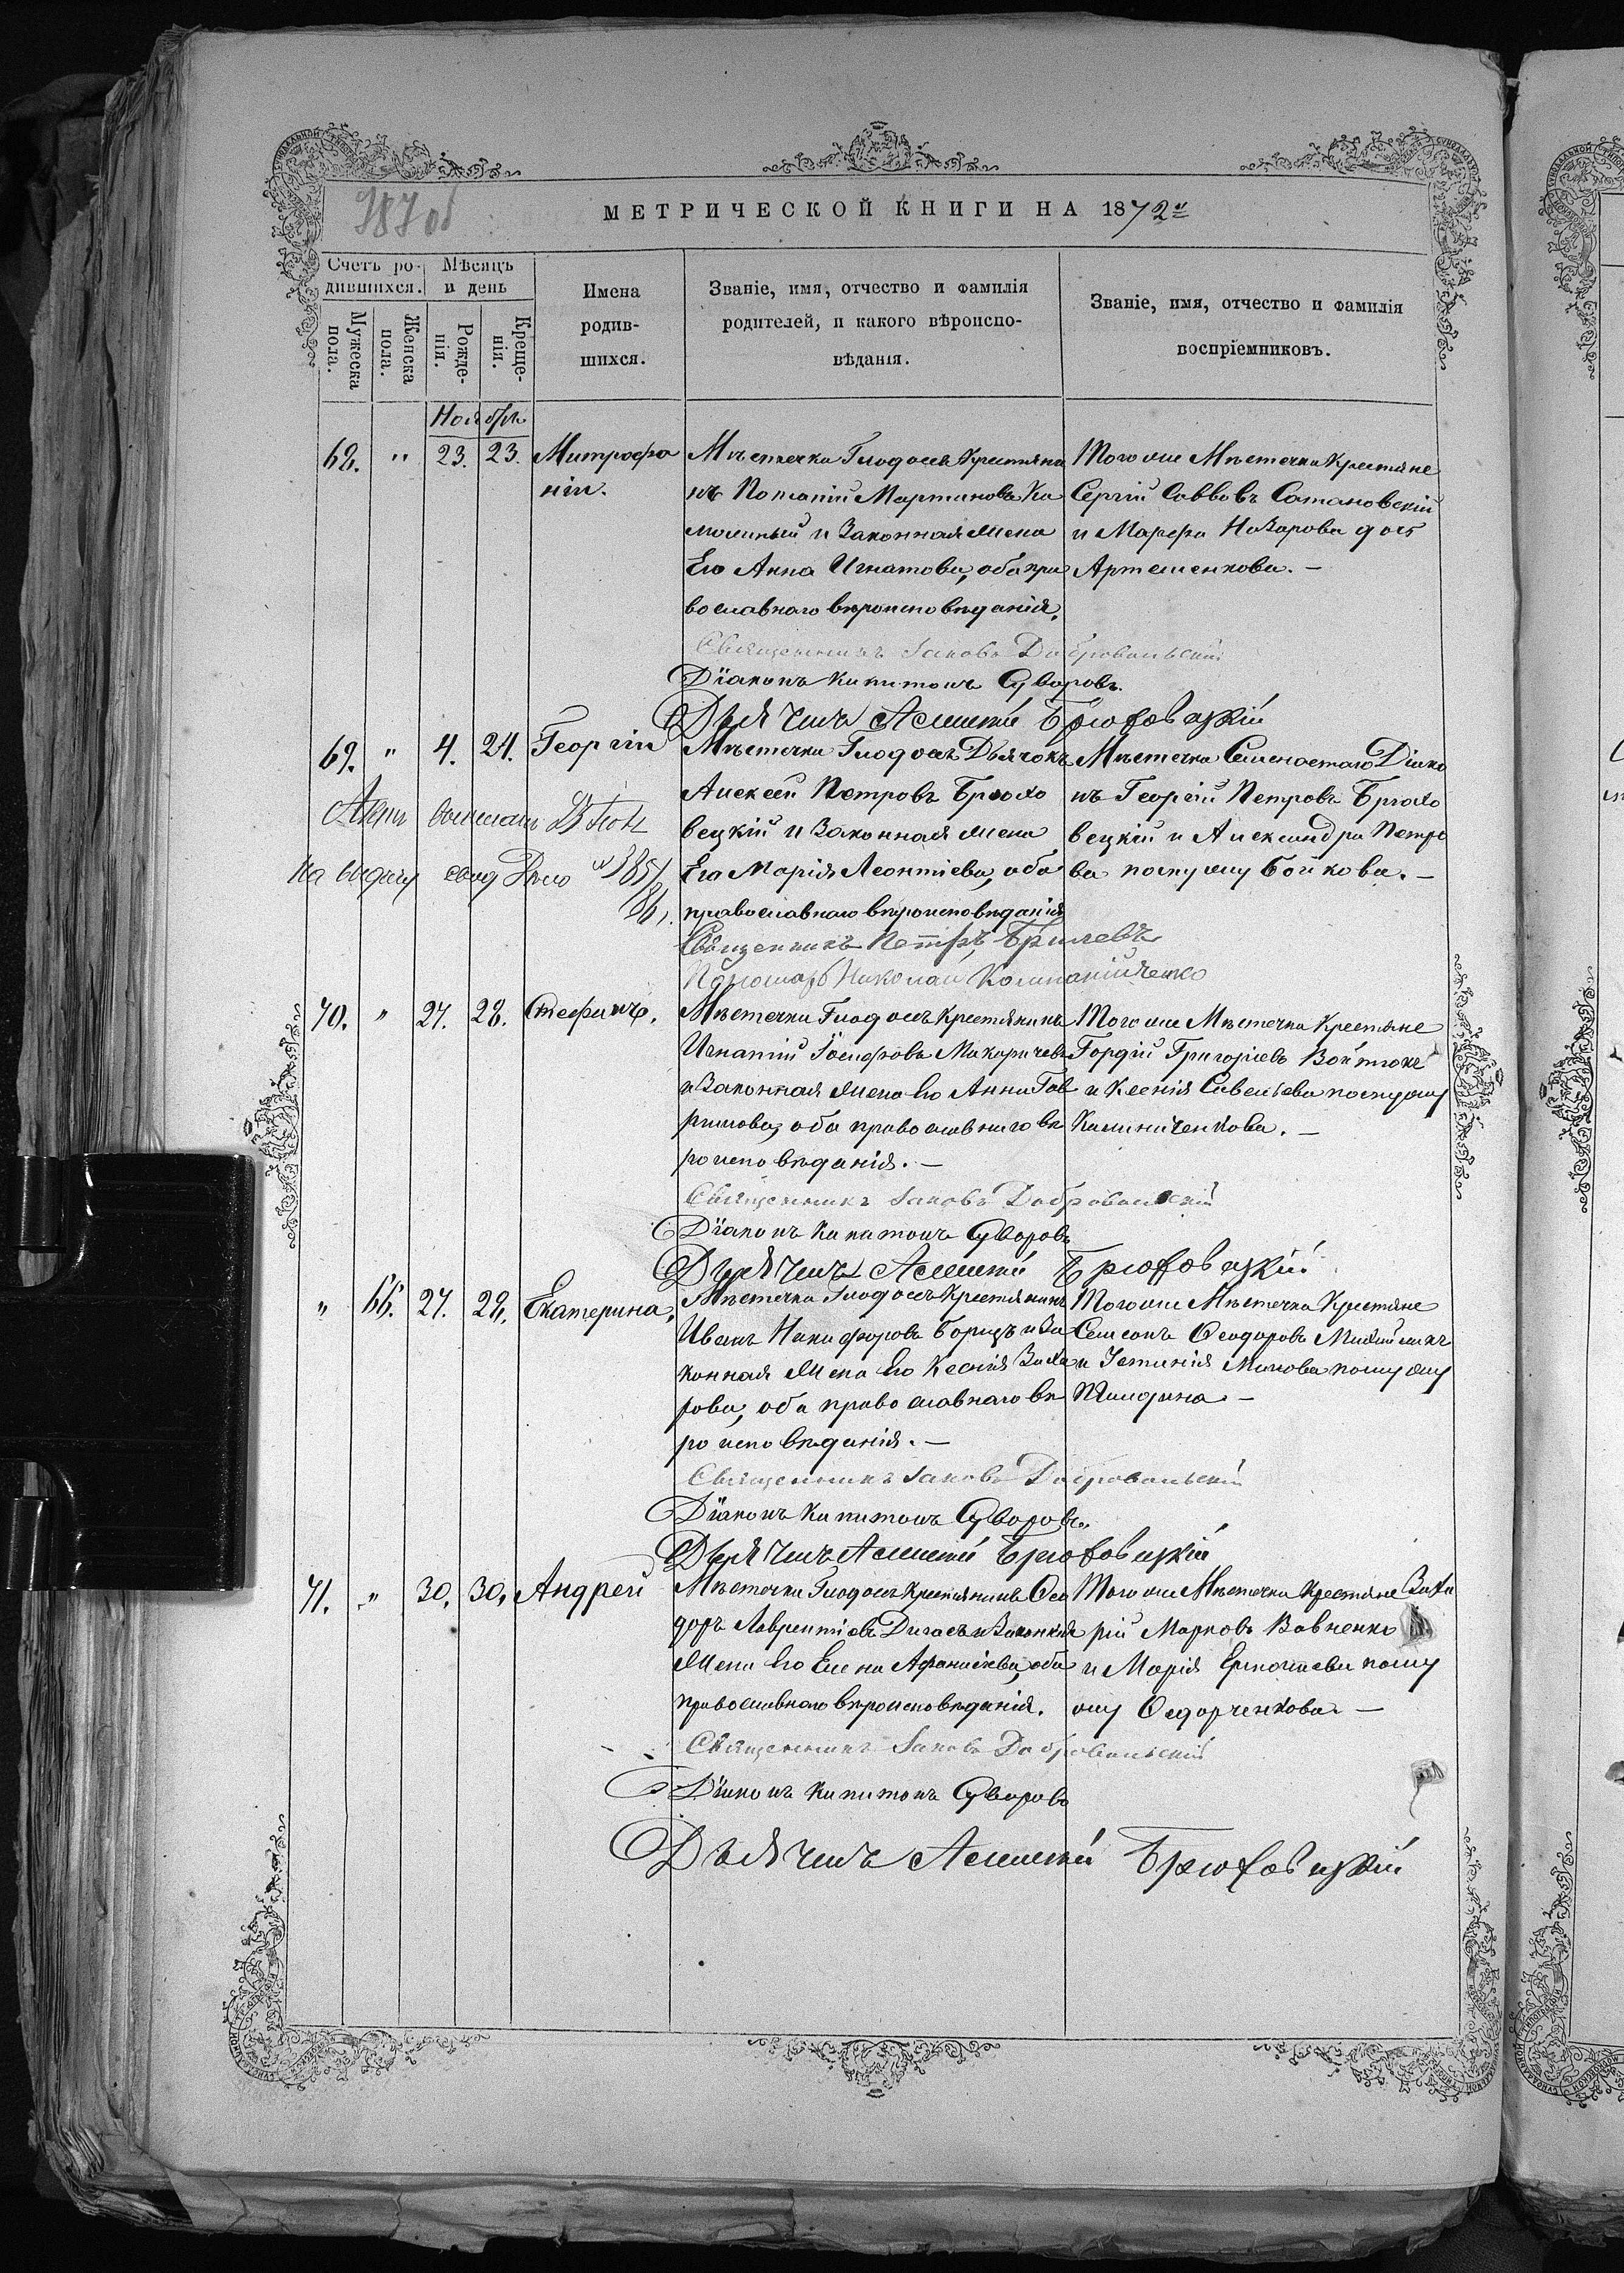 387 об
МЕТРИЧЕСКОЙ КНИГИ НА 1872 й
Счетъ ро-
дившихся.
Мѣсяцъ
и день
Мужеска
пола.
Женска
пола.
Рожде-
нія.
Креще-
нія.
Имена
родив-
шихся.
Званіе, имя, отчество и фамилія
родителей, и какого вѣроиспо-
вѣданія.
Званіе, имя, отчество и фамилія
воспріемниковъ.
Ноябрь
68. " 23. 23. Митрофа
ній.
Мѣстечка Глодосъ Крестьяни
нъ Потапій Мартиновъ
и Законная Жена
Его Анна Игнатова, оба пра
вославнаго вѣроисповѣданія.
Того же Мѣстечка Крестьяне
Сергій Саввовъ Сатановскій
и Марфа Назарова дочь
Артеменкова. —
Священникъ Іаковъ Добровольскій
Діаконъ Капитонъ Суворовъ.
Дьячокъ Алексѣй Брюховецкій
69. " 4. 24. Георгій
Мѣстечка Глодосъ Дьячокъ
Алексѣй Петровъ Брюхо
вецкій и Законная Жена
Его Марія Леонтіева, оба
православнаго вѣроисповѣданія
Мѣстечка Семенастаго Діако
нъ Георгій Петровъ Брюхо
вецкій и Александра Петро
ва по мужу Бойкова. —
на выдачу свид Дѣло
Священникъ Петръ
Пономарь Николай Компанійченко
70. " 27. 28. Стефанъ.
Мѣстечка Глодосъ Крестьянинъ
Игнатій Іосифовъ Макаричевъ
и Законная Жена Его Анна Гав
рилова, оба православнаго вѣ
роисповѣданія. —
Того же Мѣстечка Крестьяне
Гордій Григоріевъ
и Ксенія Савельева по мужу
Калиниченкова. —
Священникъ Іаковъ Добровольскій
Діаконъ Капитонъ Суворовъ
Дьячокъ Алексѣй Брюховецкій
" 66. 27. 28. Екатерина,
Мѣстечка Глодосъ Крестьянинъ
Иванъ Никифоровъ Борецъ и За
конная Жена Его Ксенія Заха
рова, оба православнаго вѣ
роисповѣданія. —
Того же Мѣстечка Крестьяне
Самсонъ Ѳеодоровъ
и Устинія по мужу
Священникъ Іаковъ Добровольскій
Діаконъ Капитонъ Суворовъ.
Дьячокъ Алексѣй Брюховецкій
71. " 30. 30. Андрей
Мѣстечка Глодосъ Крестьянинъ Ѳео
доръ Лаврентіевъ Дигасъ и Законная
Жена Его Елена Афанасіева, оба
православнаго вѣроисповѣданія.
Того же Мѣстечка Крестьяне Заха
рій Марковъ Вовненко
и Марія Ермолаева по му
жу Ѳедорченкова. —
Священникъ Іаковъ Добровольскій
Діаконъ Капитонъ Суворовъ
Дьячокъ Алексѣй Брюховецкій